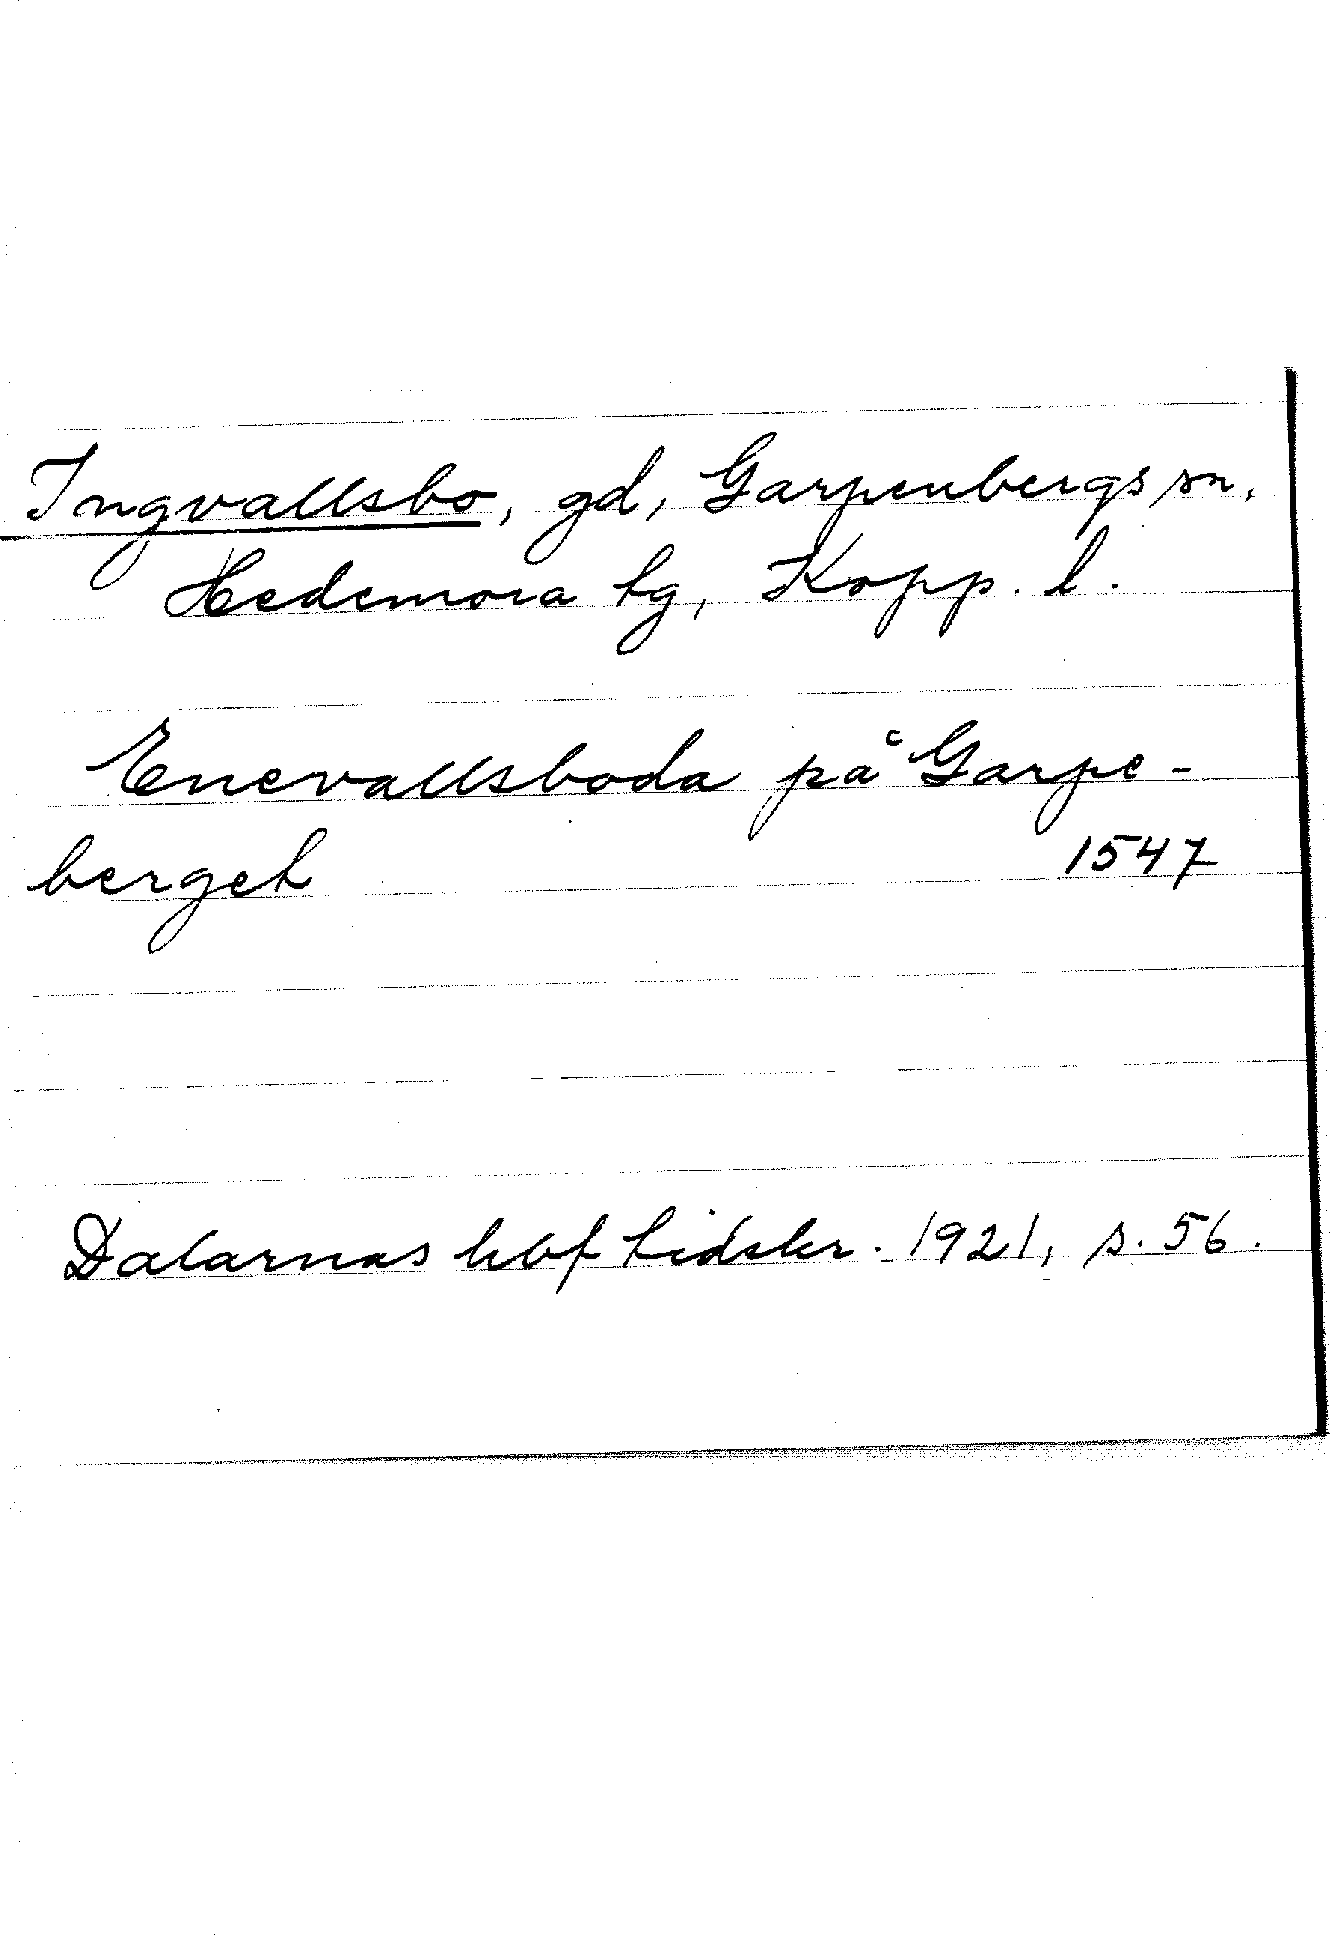 Ingvallsbo, gd, Garpenbergs sn,
Hedemora tg, Kopp. l.
Enevallsboda på Garpe-
berget 1547
Dalarnas hbf tidskr. 1921, s. 56.